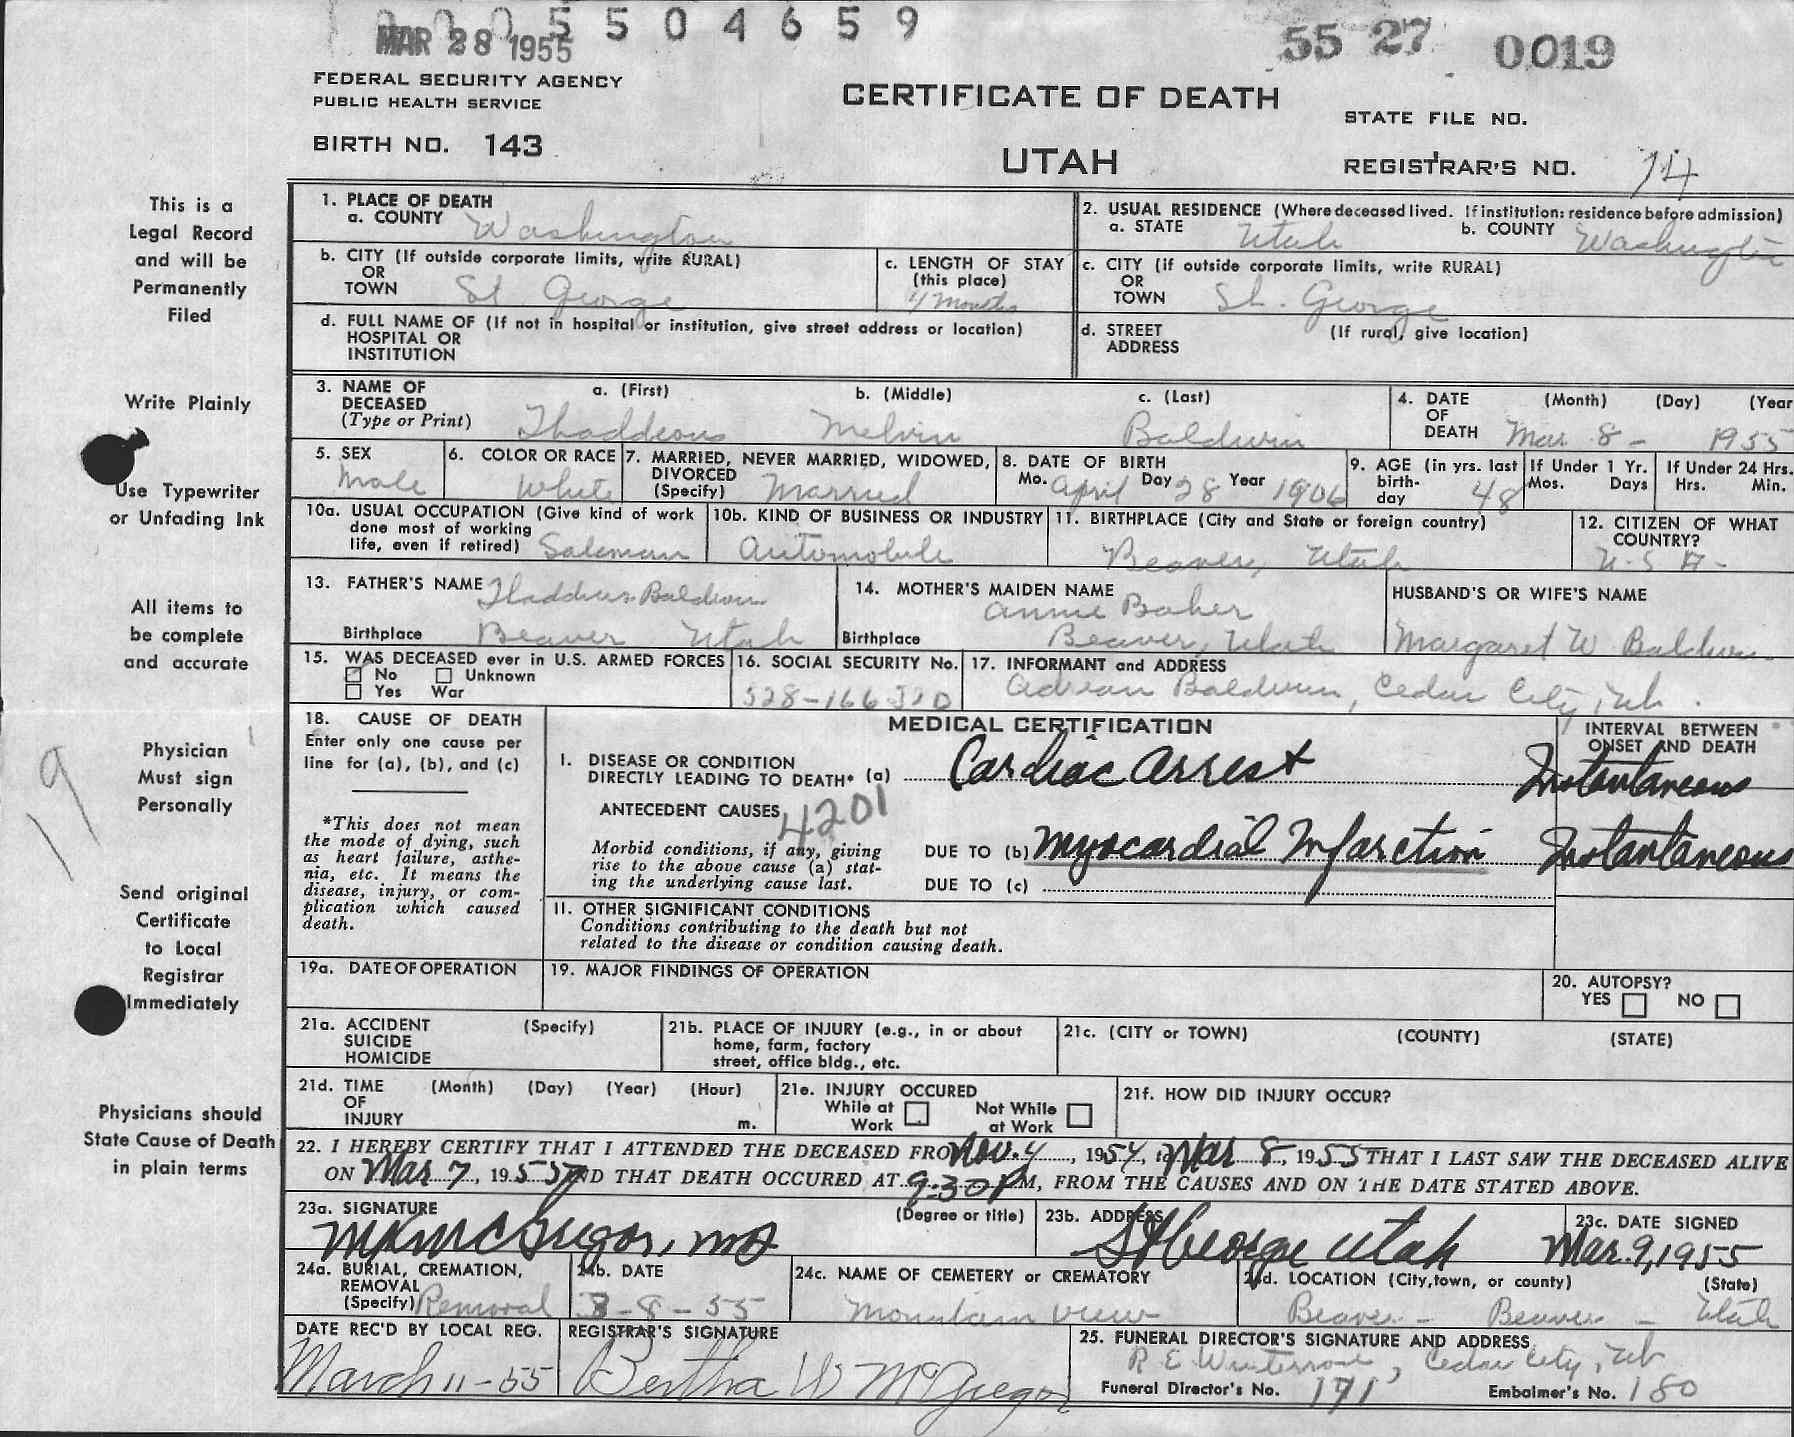 0005504659
MAR 28 1955
55 27 0019
FEDERAL SECURITY AGENCY
PUBLIC HEALTH SERVICE
BIRTH NO. 143
CERTIFICATE OF DEATH
UTAH
STATE FILE NO.
REGISTRAR'S NO. 14
This is a
Legal Record
and will be
Permanently
Filed
Write Plainly
Use Typewriter
or Unfading Ink
All items to
be complete
and accurate
Physician
Must sign
Personally
19
Send original
Certificate
to Local
Registrar
Immediately
Physicians should
State Cause of Death
in plain terms
1. PLACE OF DEATH
a. COUNTY Washington
2. USUAL RESIDENCE (Where deceased lived. If institution: residence before admission)
a. STATE Utah b. COUNTY Washington
b. CITY (If outside corporate limits, write RURAL)
OR
TOWN St George
c. LENGTH OF STAY
(this place)
4 Months
c. CITY (if outside corporate limits, write RURAL)
OR
TOWN St. George
d. FULL NAME OF (If not in hospital or institution, give street address or location)
HOSPITAL OR
INSTITUTION
d. STREET (If rural, give location)
ADDRESS
3. NAME OF
DECEASED
(Type or Print)
a. (First) b. (Middle) c. (Last)
Thaddeous Melvin Baldwin
4. DATE (Month) (Day) (Year
OF
DEATH Mar 8 - 1955
5. SEX
Male
6. COLOR OR RACE
White
7. MARRIED, NEVER MARRIED, WIDOWED,
DIVORCED
(Specify) Married
8. DATE OF BIRTH
Mo. April Day 28 Year 1906
9. AGE (in yrs. last
birth-
day 48
If Under 1 Yr.
Mos. Days
If Under 24 Hrs.
Hrs. Min.
10a. USUAL OCCUPATION (Give kind of work
done most of working
life, even if retired) Saleman
10b. KIND OF BUSINESS OR INDUSTRY
Automobile
11. BIRTHPLACE (City and State or foreign country)
Beaver, Utah
12. CITIZEN OF WHAT
COUNTRY?
U-S A-
13. FATHER'S NAME Thaddeus Baldwin
Birthplace Beaver Utah
14. MOTHER'S MAIDEN NAME
Annie Baker
Birthplace Beaver, Utah
HUSBAND'S OR WIFE'S NAME
Margaret W Baldwin
15. WAS DECEASED ever in U.S. ARMED FORCES
No Unknown
Yes War
16. SOCIAL SECURITY No.
528-166-520
17. INFORMANT and ADDRESS
Adrean Baldwin, Cedar City, Ut.
18. CAUSE OF DEATH
Enter only one cause per
line for (a), (b), and (c)
*This does not mean
the mode of dying, such
as heart failure, asthe-
nia, etc. It means the
disease, injury, or com-
plication which caused
death.
MEDICAL CERTIFICATION
INTERVAL BETWEEN
ONSET AND DEATH
I. DISEASE OR CONDITION
DIRECTLY LEADING TO DEATH* (a) Cardiac arrest Instantaneous
ANTECEDENT CAUSES
4201
Morbid conditions, if any, giving
rise to the above cause (a) stat-
ing the underlying cause last.
DUE TO (b) Myocardial Infarction Instantaneous
DUE TO (c)
II. OTHER SIGNIFICANT CONDITIONS
Conditions contributing to the death but not
related to the disease or condition causing death.
19a. DATE OF OPERATION
19. MAJOR FINDINGS OF OPERATION
20. AUTOPSY?
YES NO
21a. ACCIDENT (Specify)
SUICIDE
HOMICIDE
21b. PLACE OF INJURY (e.g., in or about
home, farm, factory
street, office bldg., etc.
21c. (CITY or TOWN) (COUNTY) (STATE)
21d. TIME (Month) (Day) (Year) (Hour)
OF
INJURY m.
21e. INJURY OCCURED
While at Work Not While at Work
21f. HOW DID INJURY OCCUR?
22. I HEREBY CERTIFY THAT I ATTENDED THE DECEASED FRO Nov. 4, 1954, to Mar 8, 1955 THAT I LAST SAW THE DECEASED ALIVE
ON Mar 7, 1955 AND THAT DEATH OCCURED AT 9:30 P M, FROM THE CAUSES AND ON THE DATE STATED ABOVE.
23a. SIGNATURE (Degree or title)
McGregor, MD
23b. ADDRESS
St George Utah
23c. DATE SIGNED
Mar. 9, 1955
24a. BURIAL, CREMATION,
REMOVAL
(Specify) Removal
24b. DATE
3-8-55
24c. NAME OF CEMETERY or CREMATORY
Mountain View
24d. LOCATION (City, town, or county) (State)
Beaver - Beaver - Utah
DATE REC'D BY LOCAL REG.
March 11-55
REGISTRAR'S SIGNATURE
Bertha W McGregor
25. FUNERAL DIRECTOR'S SIGNATURE AND ADDRESS
R E Winterrose, Cedar City, Ut
Funeral Director's No. 171 Embalmer's No. 180